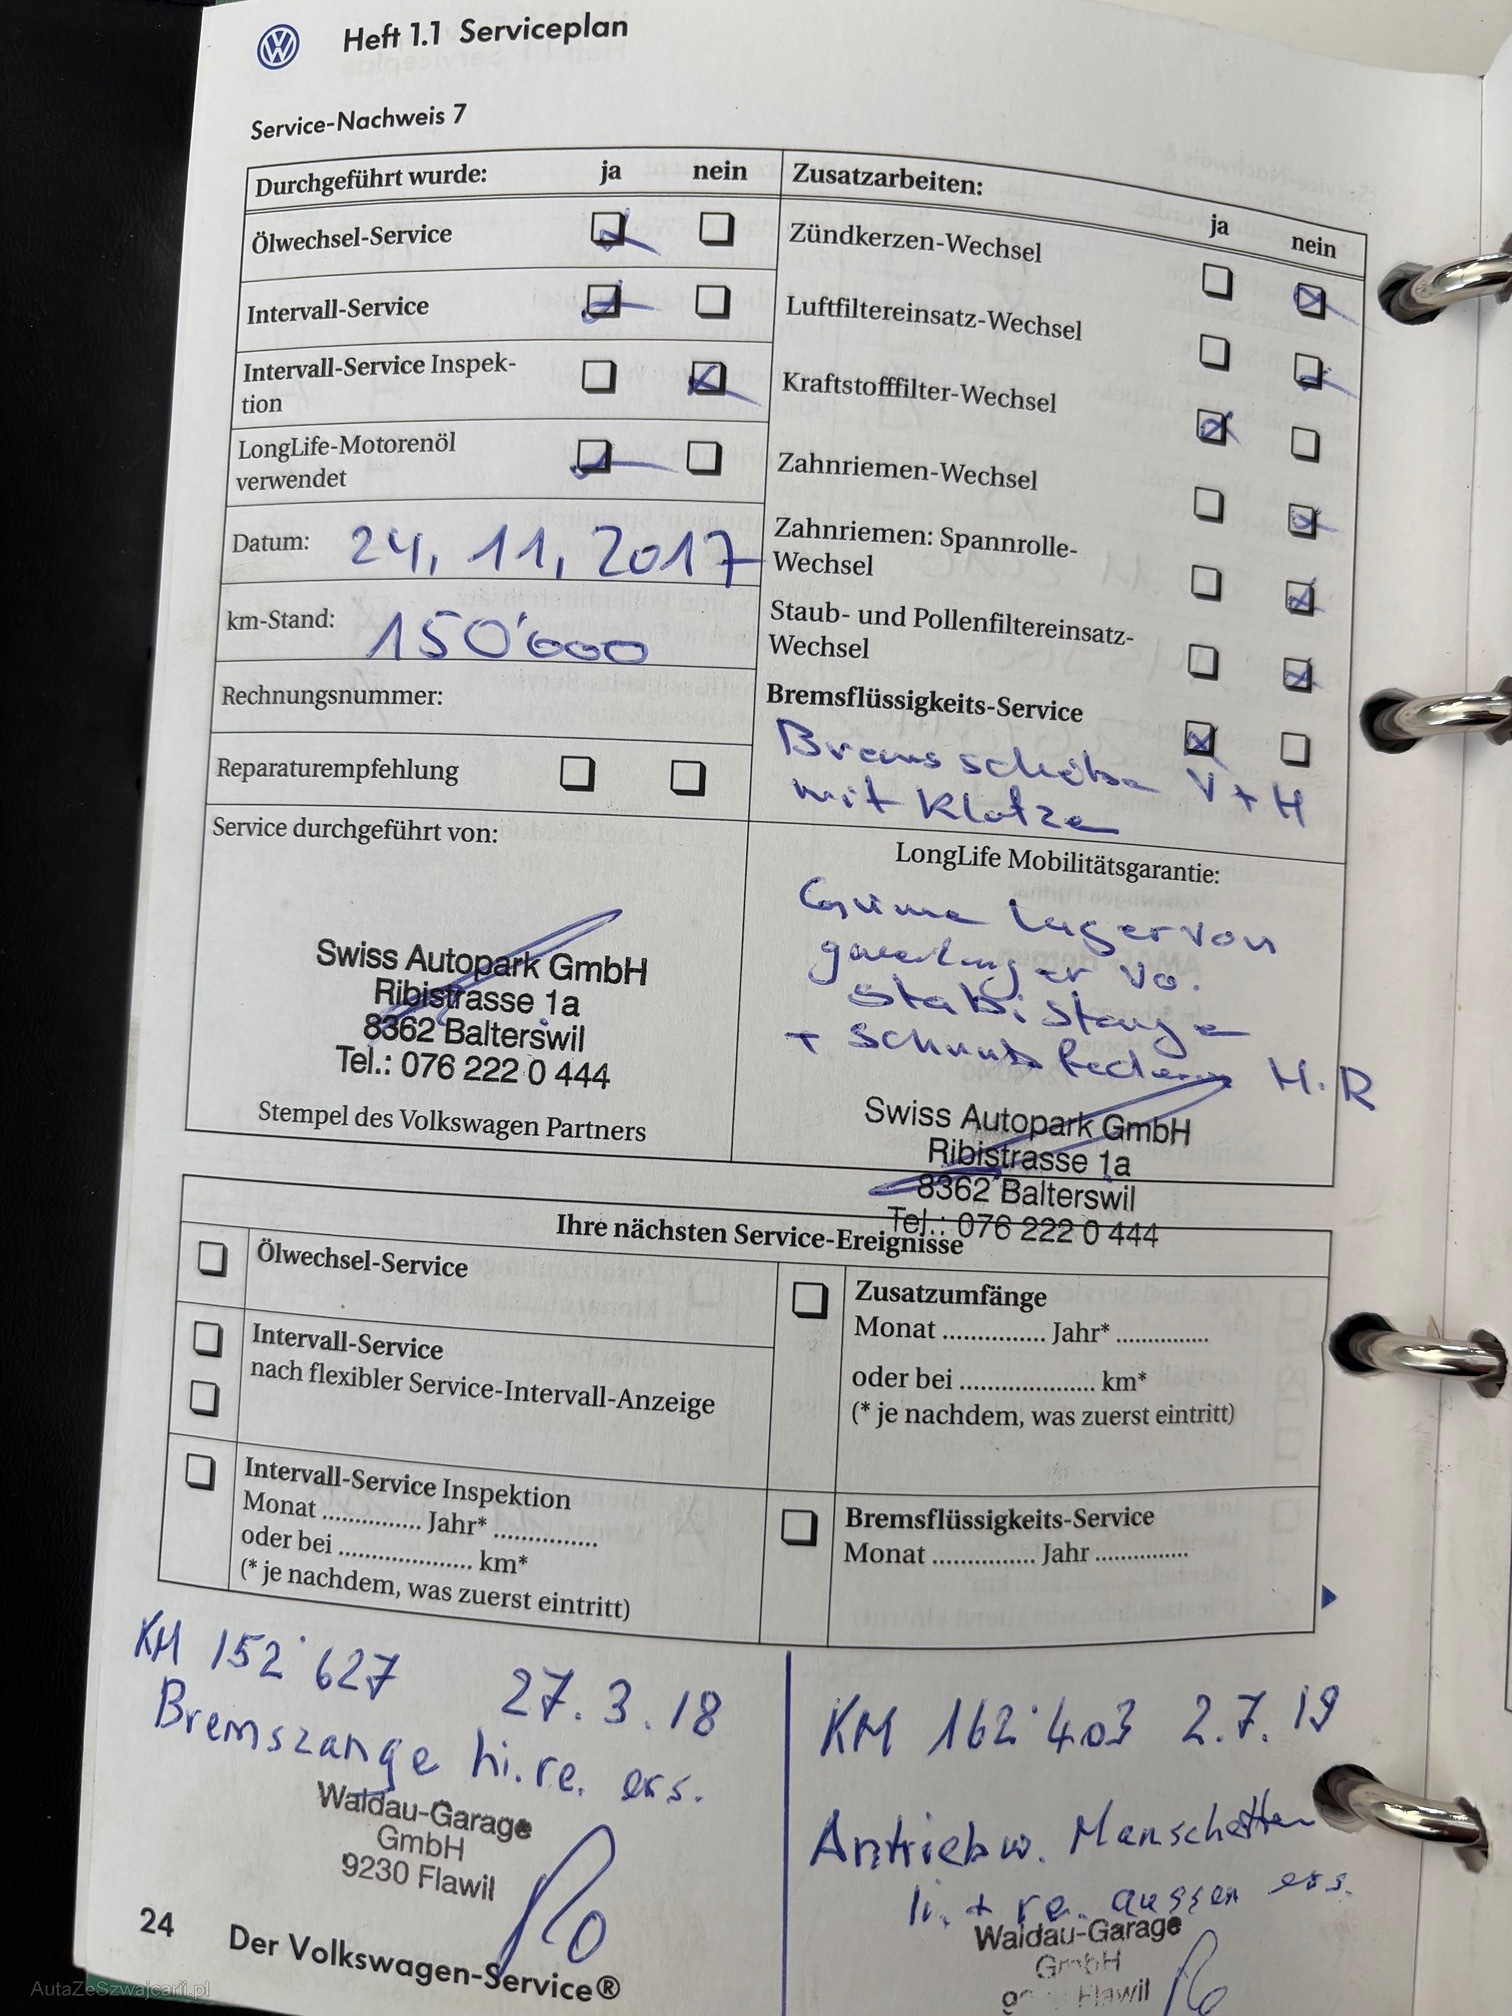 Heft 1.1 Serviceplan
Service-Nachweis 7
Durchgeführt wurde: ja nein
Ölwechsel-Service
Intervall-Service
Intervall-Service Inspek-
tion
LongLife-Motorenöl
verwendet
Datum: 24, 11, 2017
km-Stand: 150'000
Rechnungsnummer:
Reparaturempfehlung
Service durchgeführt von:
Swiss Autopark GmbH
Ribistrasse 1a
8362 Balterswil
Tel.: 076 222 0 444
Stempel des Volkswagen Partners
Zusatzarbeiten:
ja nein
Zündkerzen-Wechsel
Luftfiltereinsatz-Wechsel
Kraftstofffilter-Wechsel
Zahnriemen-Wechsel
Zahnriemen: Spannrolle-
Wechsel
Staub- und Pollenfiltereinsatz-
Wechsel
Bremsflüssigkeits-Service
V + H
mit Klotze
LongLife Mobilitätsgarantie:
Lager von
vo.
Stabistange
+ H.R
Swiss Autopark GmbH
Ribistrasse 1a
8362 Balterswil
Tel.: 076 222 0 444
Ihre nächsten Service-Ereignisse
Ölwechsel-Service
Intervall-Service
nach flexibler Service-Intervall-Anzeige
Intervall-Service Inspektion
Monat .............. Jahr* ..............
oder bei .................... km*
(* je nachdem, was zuerst eintritt)
Zusatzumfänge
Monat .............. Jahr* ..............
oder bei .................... km*
(* je nachdem, was zuerst eintritt)
Bremsflüssigkeits-Service
Monat .............. Jahr ..............
KM 152'627 27.3.18
Bremszange hi.re. ers.
Waldau-Garage
GmbH
9230 Flawil
KM 162'403 2.7.19
Antriebw. Manschetten
li. + re. aussen ers.
Waldau-Garage
GmbH
Flawil
24 Der Volkswagen-Service®
AutaZeSzwajcarii.pl